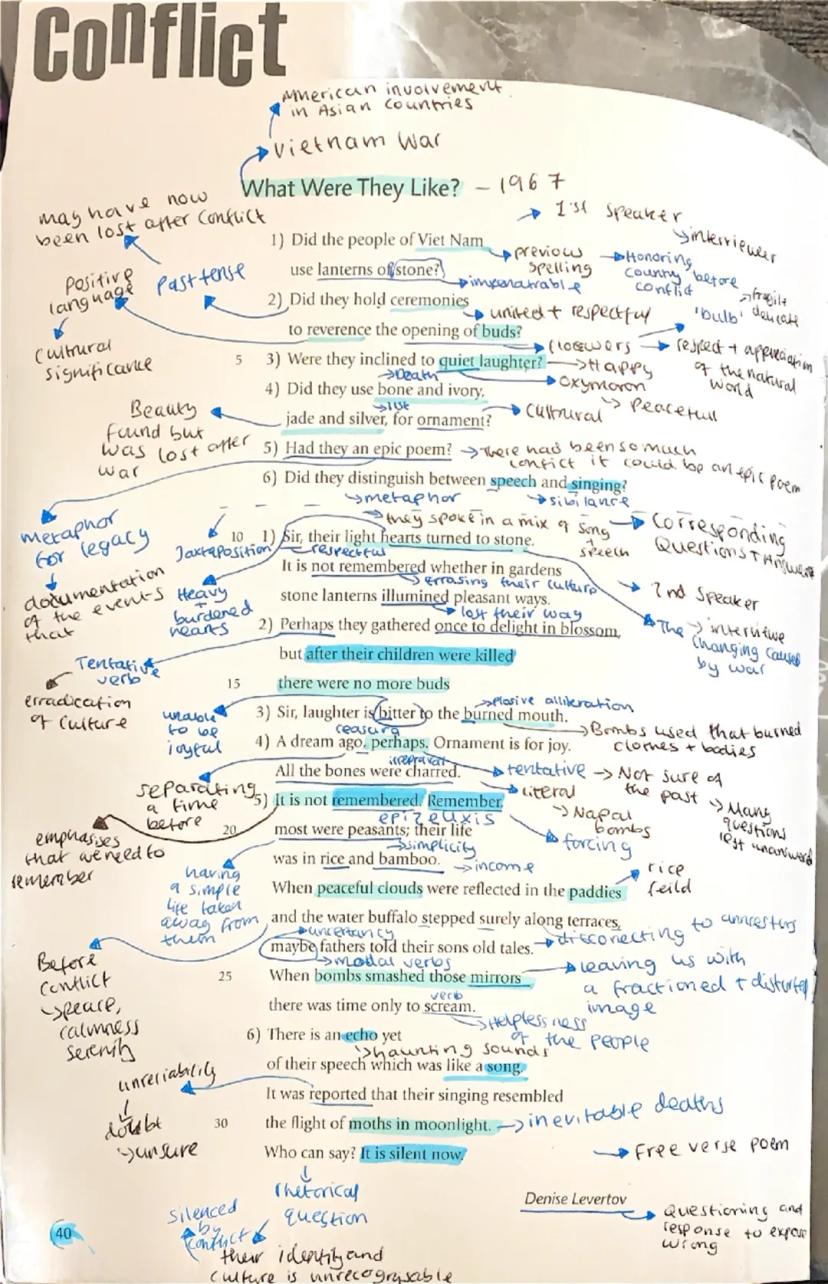 Conflict
American involvement
in Asian countries
Vietnam War
What Were They Like? - 1967
may have now
been lost after conflict
1st speaker
interviewer
1) Did the people of Viet Nam
previous
spelling
Honoring
country before
conflict
use lanterns of stone?
impenatrable
Positive
language
Past tense
Cultural
significance
2) Did they hold ceremonies
united + respectful
'bulb'
fragile
delicate
to reverence the opening of buds?
flowers
respect + appreciation
of the natural
world
5 3) Were they inclined to quiet laughter?
Happy
Death
oxymoron
Peacefull
4) Did they use bone and ivory,
jade and silver, for ornament?
Cultural
Beauty
found but
was lost after
war
5) Had they an epic poem?
There had been so much
conflict it could be an epic poem
6) Did they distinguish between speech and singing?
metaphor
sibilance
metaphor
for legacy
documentation
of the events
that
they spoke in a mix of song
+
speech
Corresponding
Questions + Answers
Juxtaposition
10 1) Sir, their light hearts turned to stone.
respectful
It is not remembered whether in gardens
errasing their culture
Heavy
+
burdened
hearts
2nd speaker
stone lanterns illumined pleasant ways.
lost their way
The
changing caused
by war
2) Perhaps they gathered once to delight in blossom,
Tentative
verb
erradication
of culture
but after their children were killed
15 there were no more buds
plosive alliteration
unable
to be
joyful
3) Sir, laughter is bitter to the burned mouth.
Bombs used that burned
clothes + bodies
4) A dream ago, perhaps. Ornament is for joy.
tentative
Not sure of
the past
Many
questions
left unanswered
All the bones were charred.
literal
Napal
bombs
separating
a time
before
5) It is not remembered. Remember,
epizeuxis
forcing
emphasises
that we need to
remember
20 most were peasants; their life
simplicity
was in rice and bamboo.
income
rice
feild
having
a simple
life taken
away from
them
When peaceful clouds were reflected in the paddies
and the water buffalo stepped surely along terraces,
uncertancy
maybe fathers told their sons old tales.
disconecting to anncestors
modal verbs
Before
conflict
peace,
calmness
serenity
25 When bombs smashed those mirrors
leaving us with
a fractioned + distorted
image
there was time only to scream.
verb
Helplessness
of the people
6) There is an echo yet
haunting sounds
of their speech which was like a song.
unreliability
doubt
unsure
It was reported that their singing resembled
30 the flight of moths in moonlight.
inevitable deaths
Who can say? It is silent now.
Free verse poem
rhetorical
question
Silenced
by
conflict
their identity and
culture is unrecognisable
Denise Levertov
Questioning and
response to expose
wrong
40